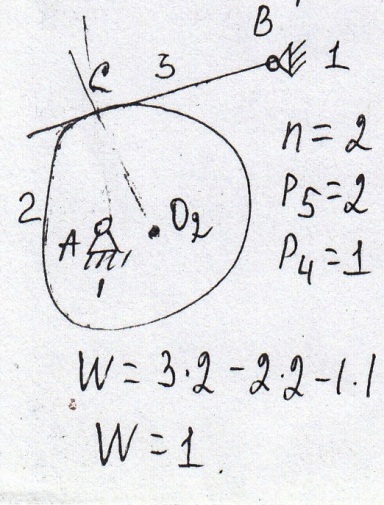 B
C 3 1
n = 2
P5 = 2
2 A O2
P4 = 1
1
W = 3·2 - 2·2 - 1·1
W = 1.